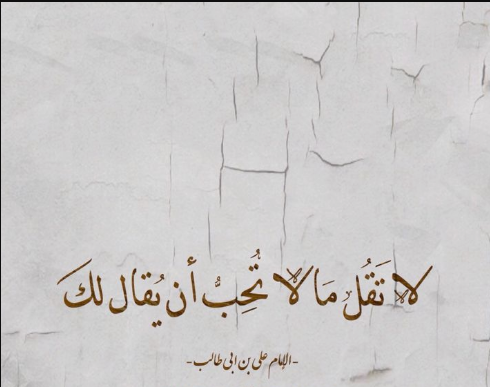 لا تَقُلْ مَا لا تُحِبُّ أن يُقال لكَ
-الإمام علي بن ابي طالب-